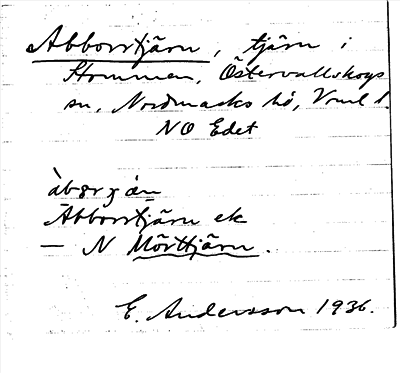 Abborrtjärn, tjärn i
Stommen, Östervallskogs
sn, Nordmarks hd, Vrml l.
NO Edet
àbərçǽn
Abborrtjärn ek
— N Mörttjärn.
E. Andersson 1936.